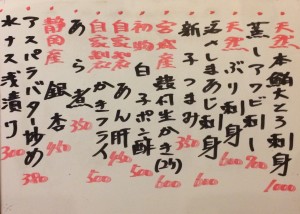 天然 本鮪大とろ刺身 1000
蒸しアワビ 900
天然 ぶり刺身 600
活〆しまあじ刺身 600
新子つまみ
宮城産 殻付生かき(2ケ) 600
初物 白子ポン酢 600
自家製 あん肝 450
自家製 かきフライ 500
あら煮 350
静岡産 銀杏 450
アスパラバター炒め 380
水ナス浅漬け 300